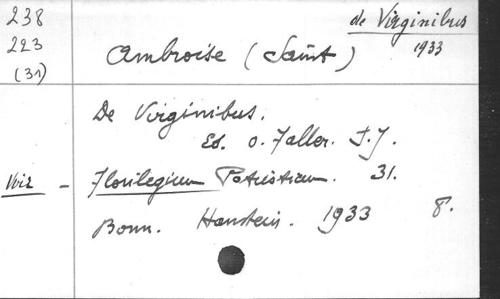 238
223
(31)
de Virginibus
1933
Ambroise (Saint)
De Virginibus.
Ed. O. Faller. S.J.
Voir - Florilegium Patristicum. 31.
Bonn. Hanstein. 1933 8°.